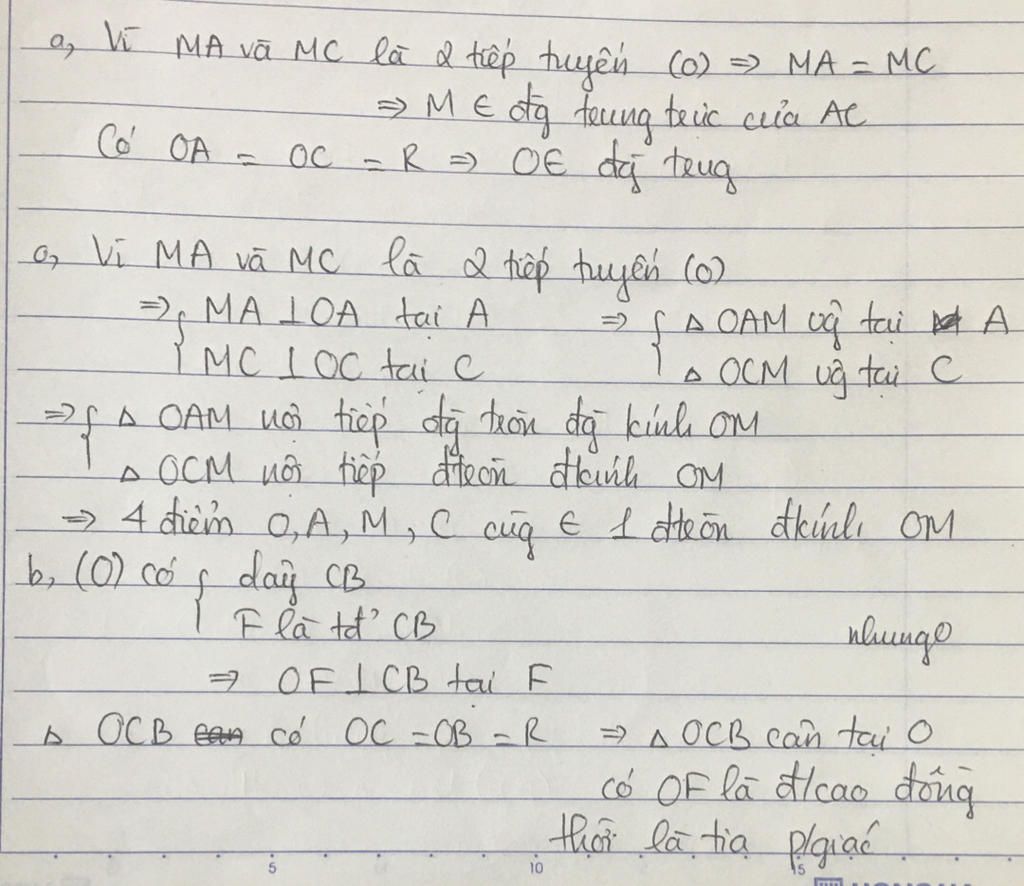 a, Vì MA và MC là 2 tiếp tuyến (O) ⇒ MA = MC
⇒ M ∈ đg trung trực của AC
Có OA = OC = R ⇒ O∈ đg trug
a, Vì MA và MC là 2 tiếp tuyến (O)
⇒ { MA ⊥ OA tại A ⇒ { △ OAM vg tại A
MC ⊥ OC tại C △ OCM vg tại C
⇒ { △ OAM nội tiếp đg tròn đg kính OM
△ OCM nội tiếp đtròn đkính OM
⇒ 4 điểm O, A, M, C cùg ∈ 1 đtròn đkính OM
b, (O) có { dây CB
F là tđ' CB nhung
⇒ OF ⊥ CB tại F
△ OCB can có OC = OB = R ⇒ △ OCB cân tại O
có OF là đ/cao đồng
thời là tia p/giác
5 10 15